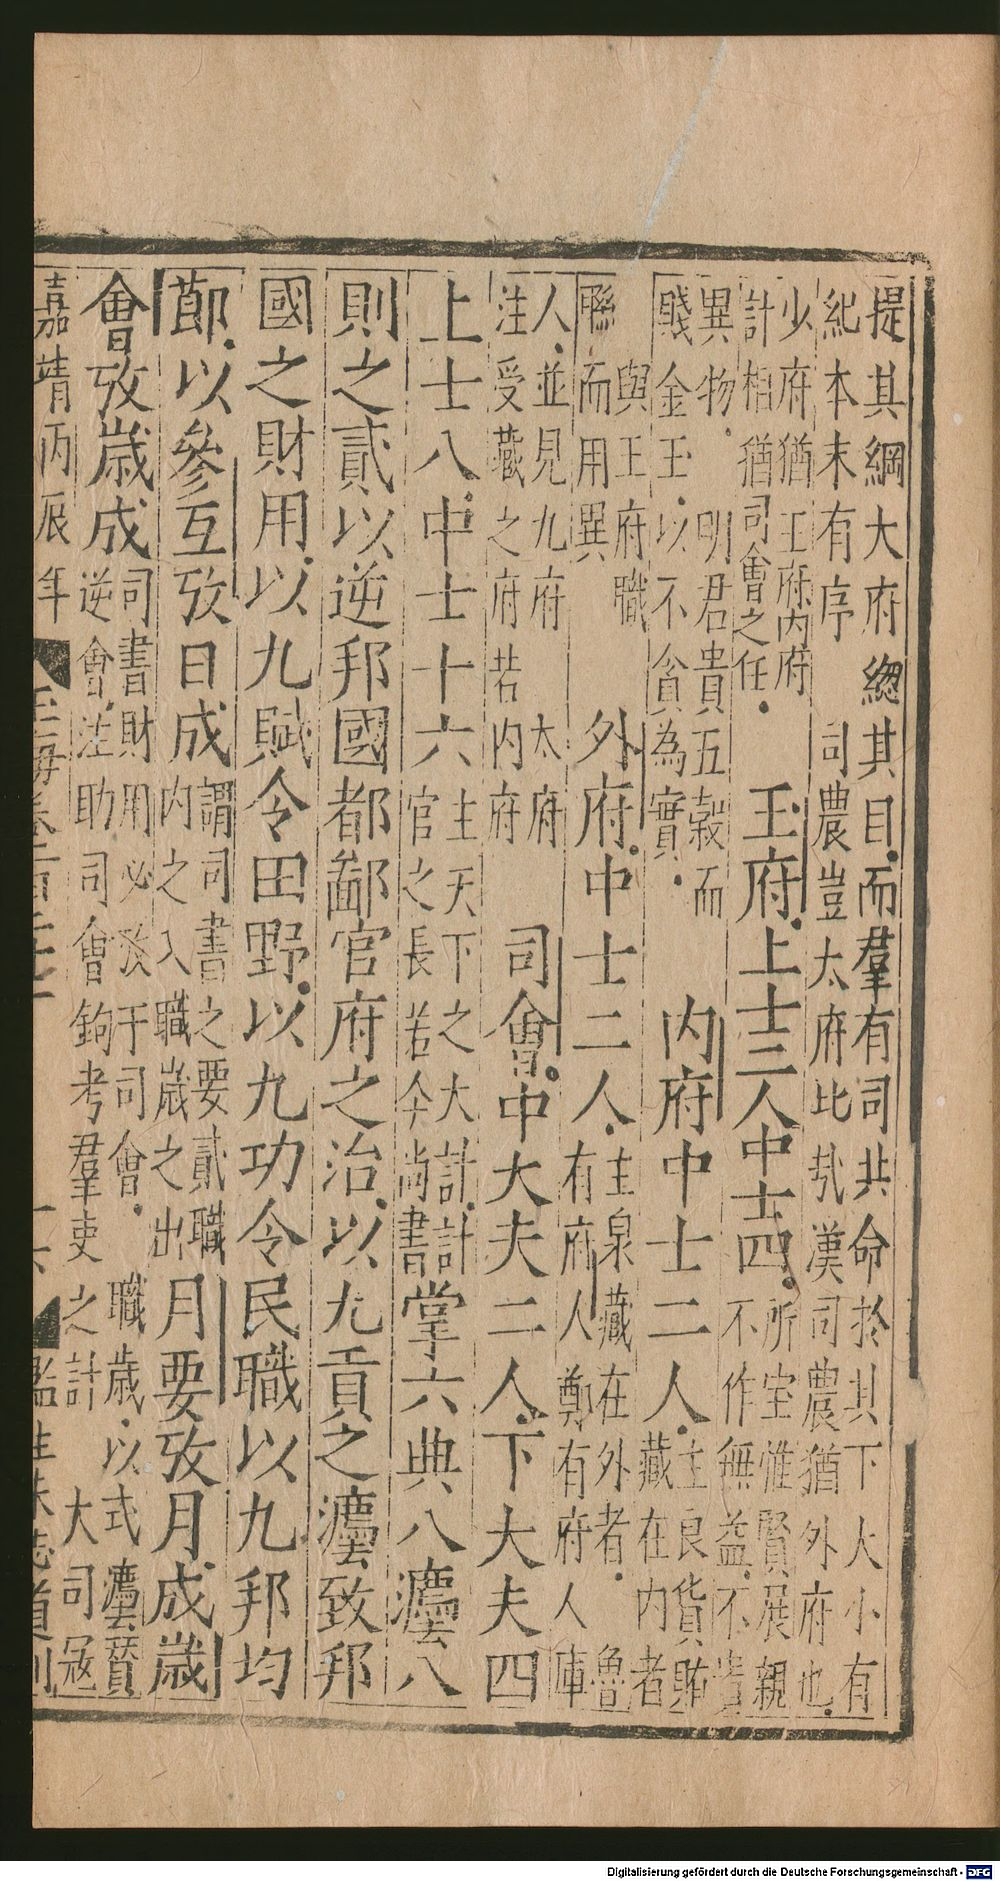 提其綱大府總其目而羣有司共命於其下大小有
紀本末有序 司農豈太府比㢤漢司農猶外府也
少府猶玉府内府
計相猶司會之任
玉府上士二人中士四
所宝惟賢展親
不作無益不貴
異物 明君貴五穀而
賤金玉以不貪為實
内府中士二人
主良貨賄
藏在内者
與玉府職
聮而用異
外府中士二人
主泉藏在外者 魯
有府人鄭有府人庫
人並見九府 太府
注受藏之府若内府
司會中大夫二人下大夫四
上士八中士十六
主天下之大計計
官之長若今尚書
掌六典八灋八
則之貳以逆邦國都鄙官府之治以九貢之灋致邦
國之財用以九賦令田野以九功令民職以九邦均
節以參互攷日成
謂司書之要貳職
内之入職歲之出
月要攷月成歲
會攷歲成
司書財用必攷于司會 職歳以式灋賛
逆會注助司會鉤考羣吏之計 大司冦
嘉靖丙辰年
玉海卷
監生朱志道刊
Digitalisierung gefördert durch die Deutsche Forschungsgemeinschaft - DFG